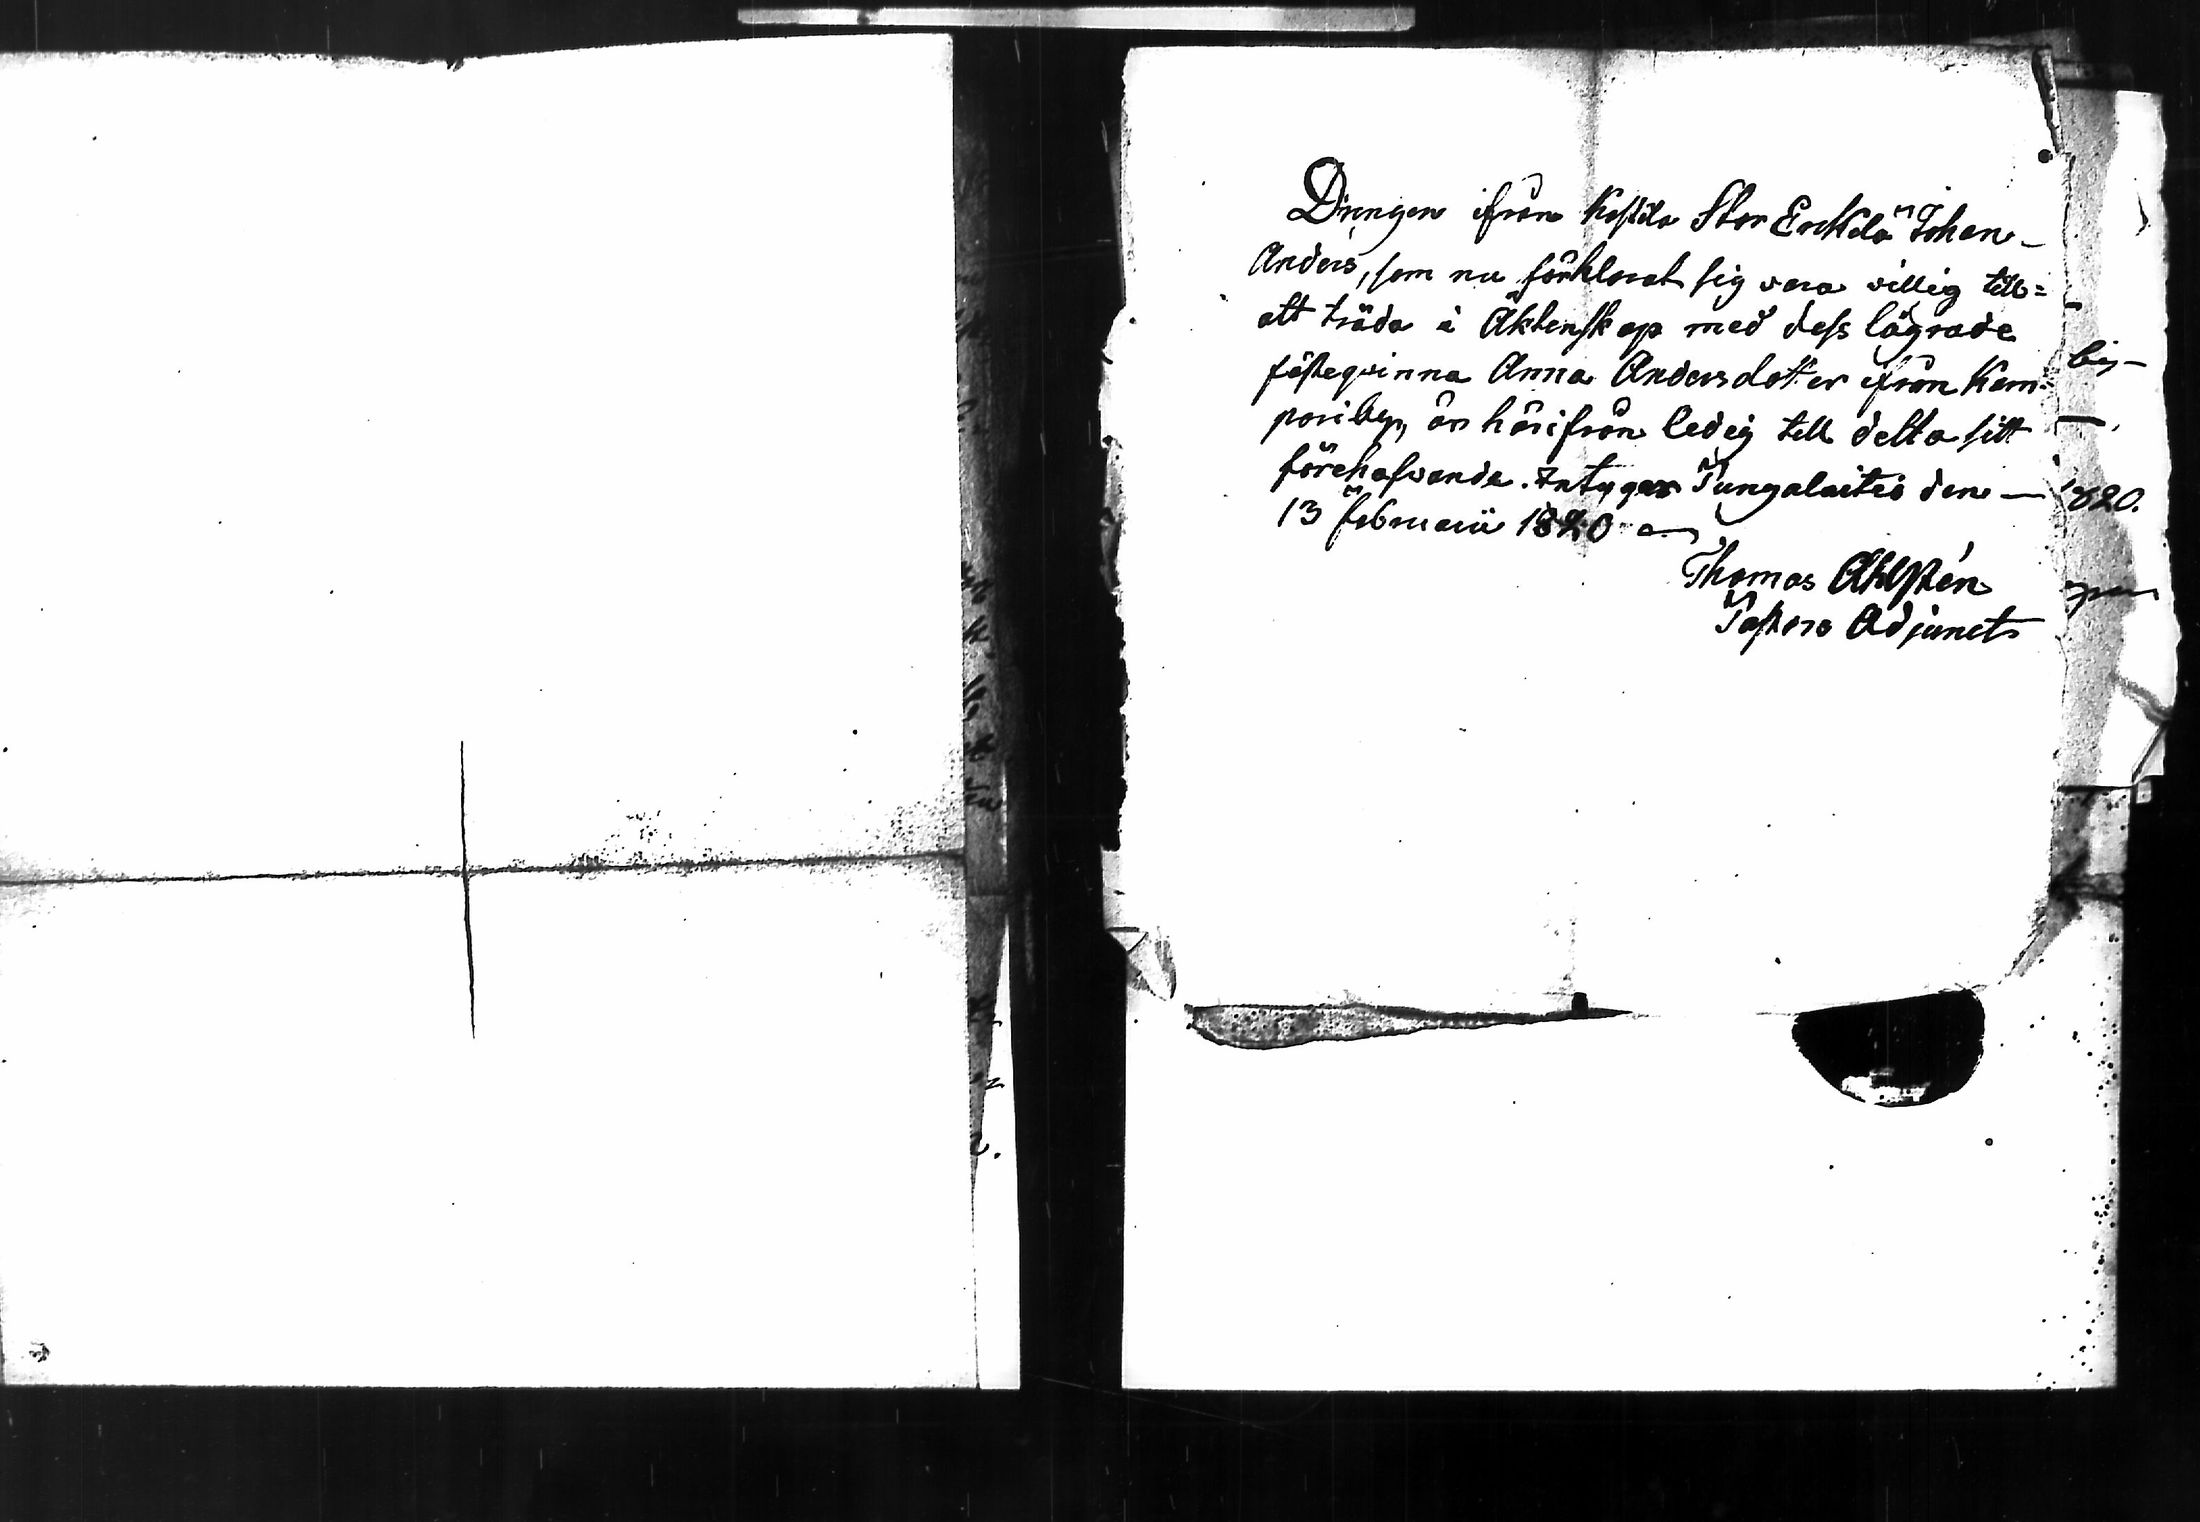 Drängen ifrån Kestilä Stor Erckilä Johan
Anders, som nu förklarat sig vara villig till=
att träda i Äktenskap med dess lägrade
fästeqvinna Anna Andersdotter ifrån Kem=
pariby, är härifrån ledig till detta sitt
förehafvande. Intygar Pungalaitio den —
13 februarii 1820
Thomas Ahlstén
Pastors Adjunct
by —
1820.